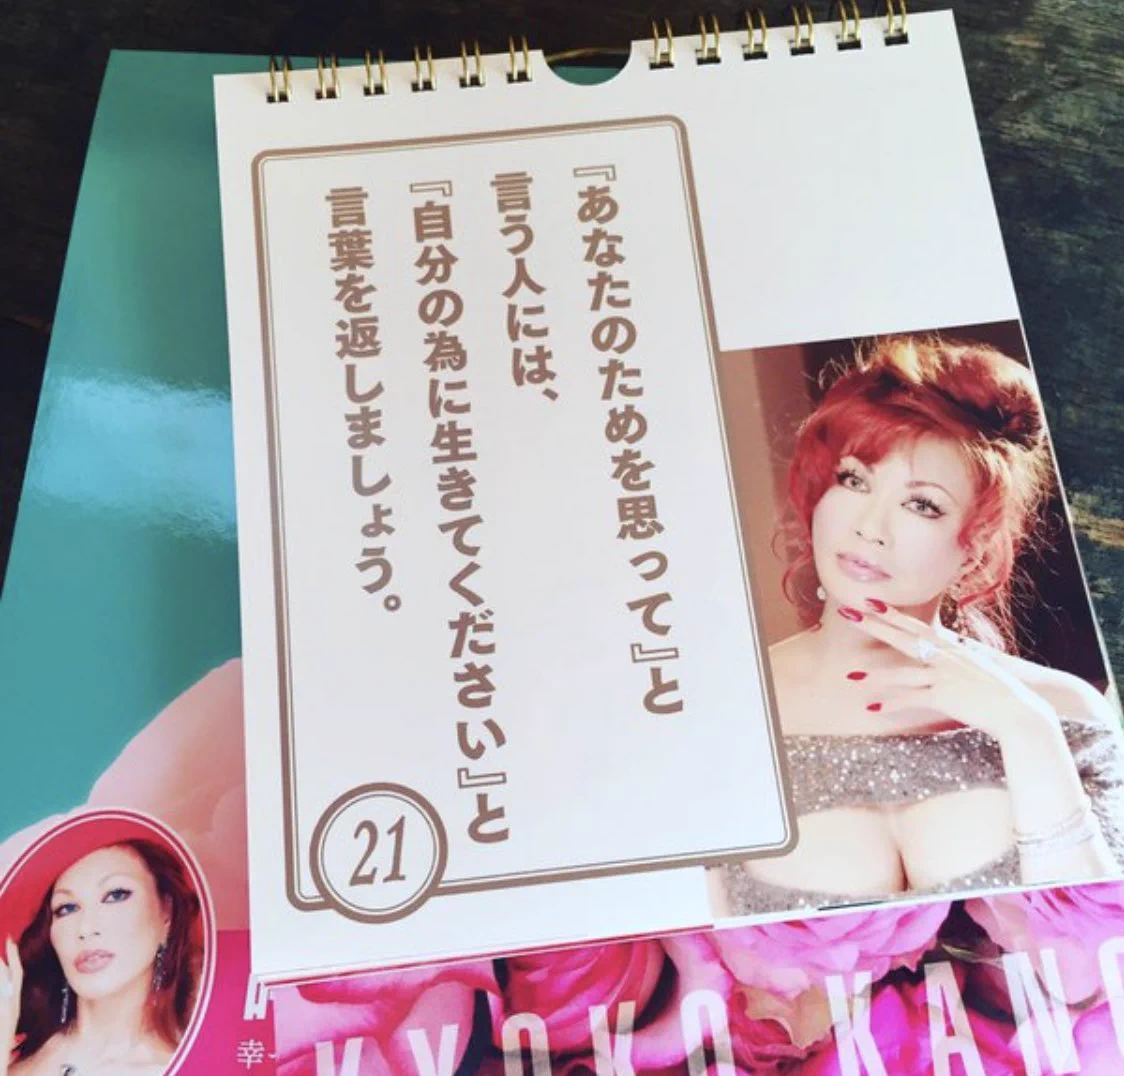 『あなたのためを思って』と
言う人には、
『自分の為に生きてください』と
言葉を返しましょう。
21
幸
KYOKO KANO